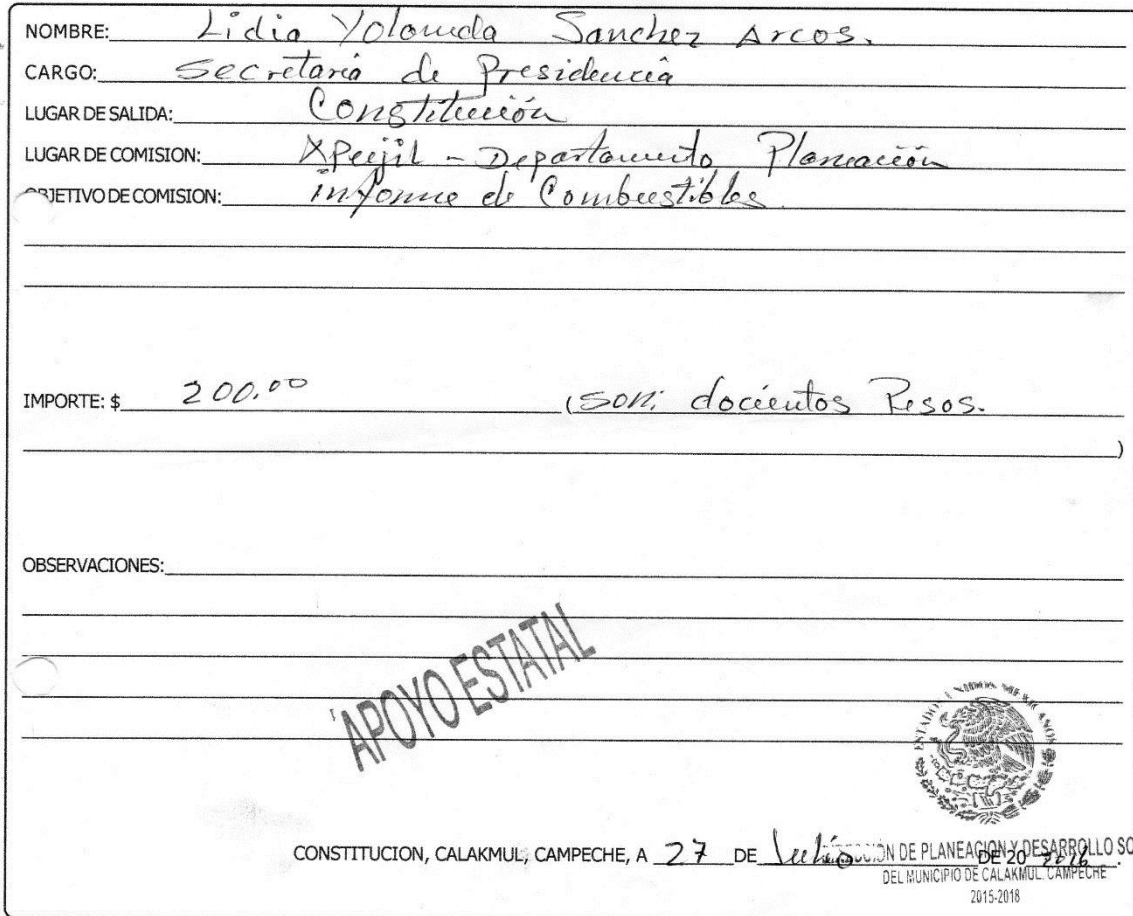 NOMBRE: Lidia Yolanda Sanchez Arcos.
CARGO: Secretaria de Presidencia
LUGAR DE SALIDA: Constitución
LUGAR DE COMISION: Xpujil - Departamento Planeación
OBJETIVO DE COMISION: informe de Combustibles.
IMPORTE: $ 200.00 (SON: docientos Pesos.
)
OBSERVACIONES:
APOYO ESTATAL
ESTADOS UNIDOS MEXICANOS
CONSTITUCION, CALAKMUL, CAMPECHE, A 27 DE Julio DE 20 2016.
DIRECCIÓN DE PLANEACION Y DESARROLLO SO
DEL MUNICIPIO DE CALAKMUL, CAMPECHE
2015-2018